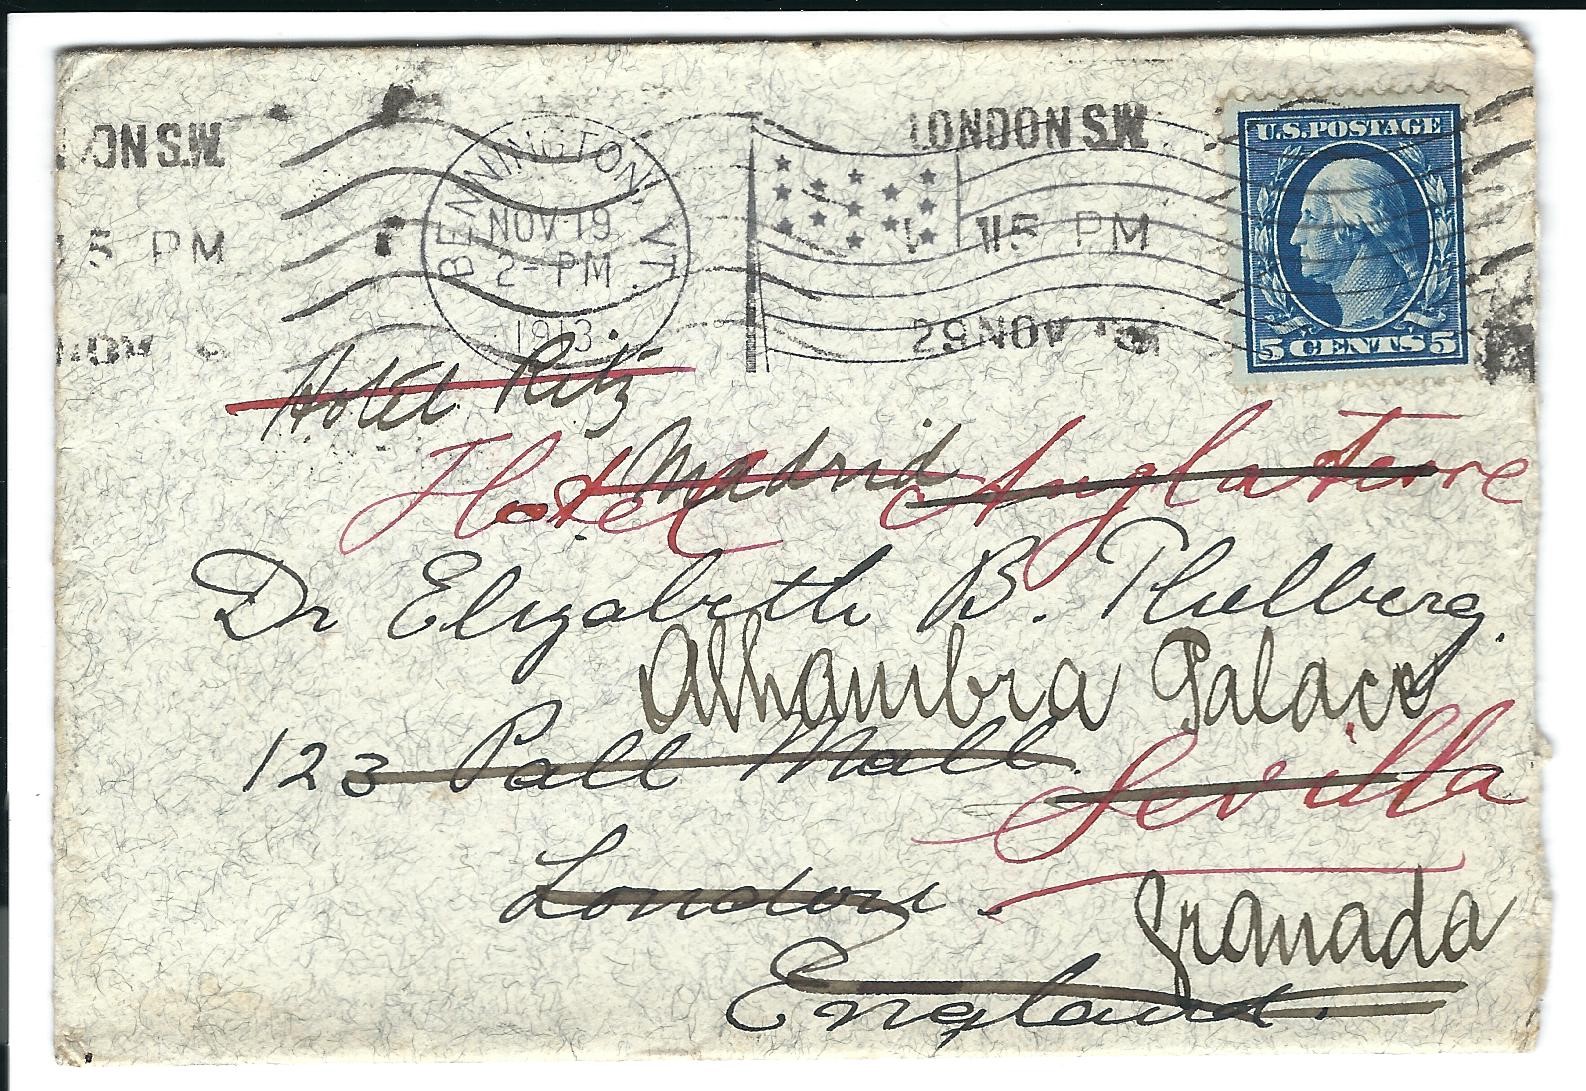 LONDON S.W.
U.S. POSTAGE
ON S.W.
BENNINGTON, VT.
NOV 19
2 - PM
1913.
5 PM
115 PM
29 NOV
NOV
5 CENTS 5
Hotel Ritz
Madrid
Hotel Anglaterre
Dr Elizabeth B. Thelberg.
Alhambra Palace
123 Pall Mall.
Sevilla
London.
Granada
England.